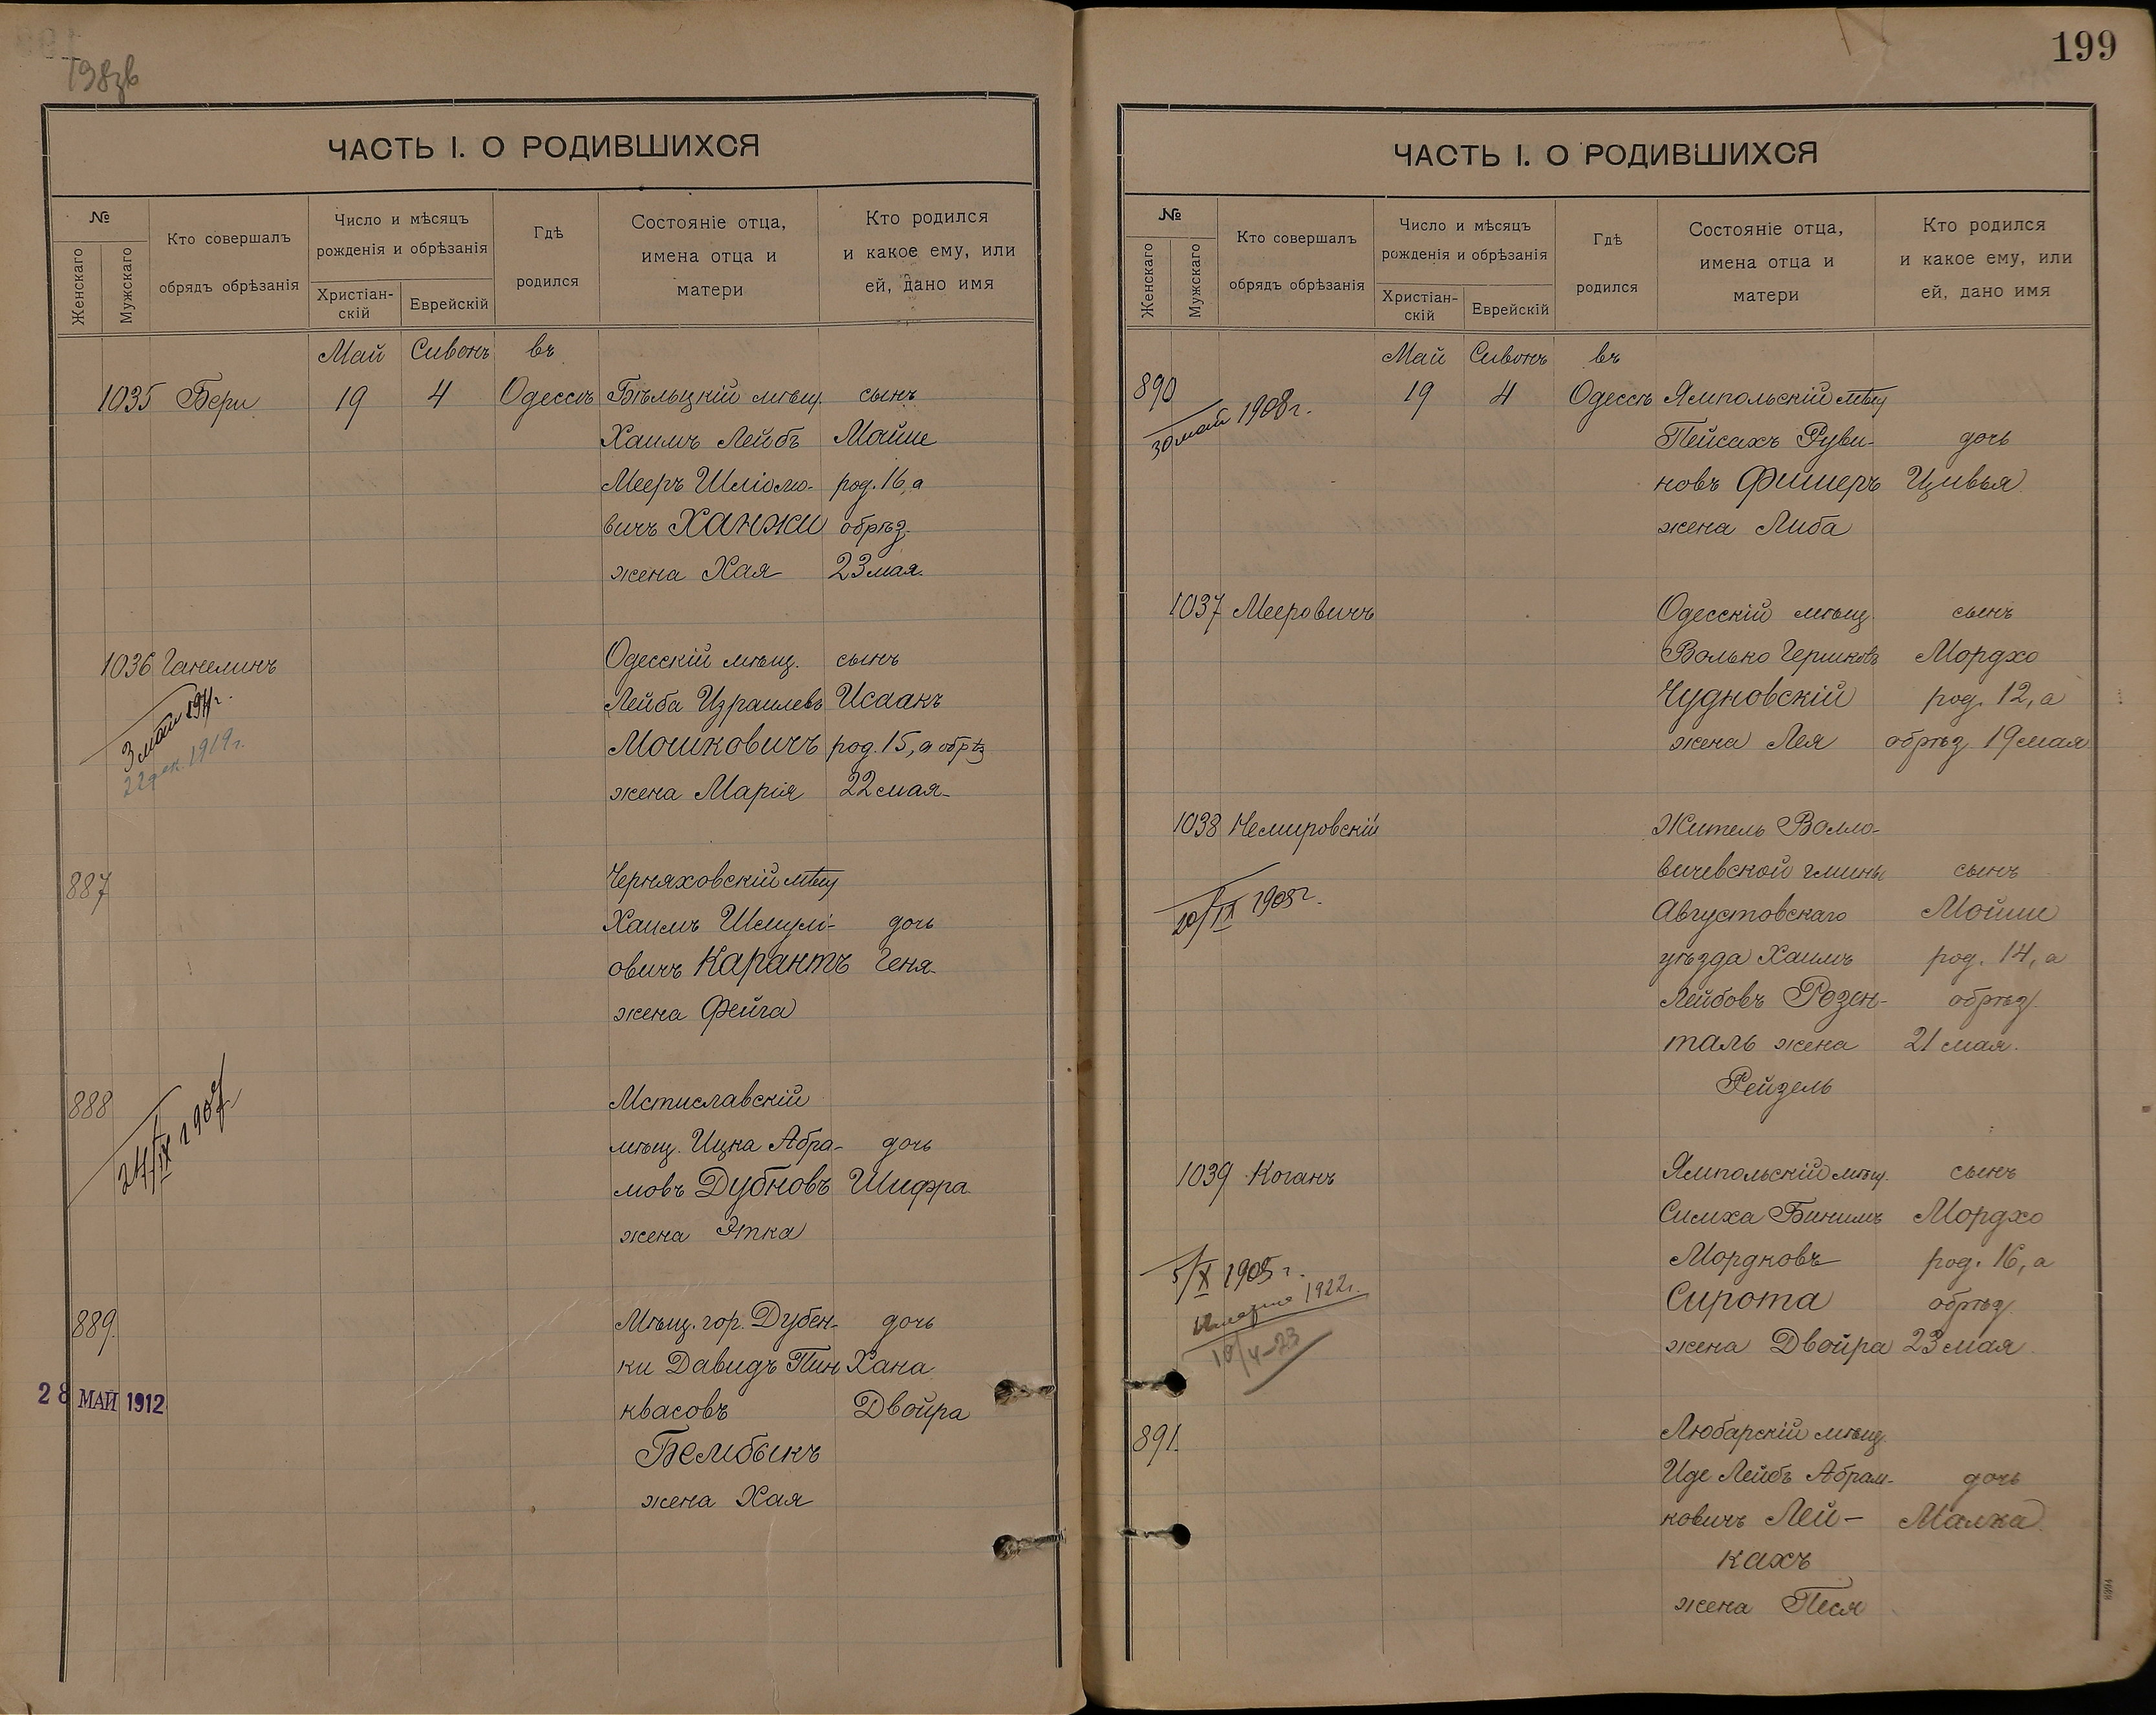 198зв
ЧАСТЬ I. О РОДИВШИХСЯ
№
Женскаго
Мужскаго
Кто совершалъ
обрядъ обрѣзанія
Число и мѣсяцъ
рожденія и обрѣзанія
Христіан-
скій
Еврейскій
Гдѣ
родился
Состояніе отца,
имена отца и
матери
Кто родился
и какое ему, или
ей, дано имя
Май Сивонъ въ
1035 Бери 19 4 Одессѣ Бѣльцкій мѣщ. сынъ
Хаимъ Лейбъ Мойше
Мееръ Шліомо- род. 16, а
вичъ Ханжи обрѣз.
жена Хая 23 мая.
1036 Ганелинъ Одесскій мѣщ. сынъ
3 май 1911 г. Лейба Израилевъ Исаакъ
22 дек. 1919 г. Мошковичъ род. 15, а обрѣз
жена Марія 22 мая
887 Черняховскій мѣщ
Хаимъ Шмулі- дочь
овичъ Карантъ Геня
жена Фейга
888 Мстиславскій
24/IX 1907 мѣщ. Ицка Абра- дочь
мовъ Дубновъ Шифра
жена Этка
889. Мѣщ. гор. Дубен- дочь
ки Давидъ Пин Хана
28 МАЙ 1912 квасовъ Двойра
Бембыкъ
жена Хая
199
ЧАСТЬ I. О РОДИВШИХСЯ
№
Женскаго
Мужскаго
Кто совершалъ
обрядъ обрѣзанія
Число и мѣсяцъ
рожденія и обрѣзанія
Христіан-
скій
Еврейскій
Гдѣ
родился
Состояніе отца,
имена отца и
матери
Кто родился
и какое ему, или
ей, дано имя
Май Сивонъ въ
890 19 4 Одессѣ Ямпольскій мѣщ
30 май 1908 г. Пейсахъ Руви- дочь
новъ Фишеръ Цивья
жена Либа
1037 Мееровичъ Одесскій мѣщ. сынъ
Волько Гершковъ Мордхо
Чудновскій род. 12, а
жена Лея обрѣз 19 мая
1038 Немировскій Житель Волло-
вичевской гмины сынъ
20/IX 1905 г. Августовскаго Мойше
уѣзда Хаимъ род. 14, а
Лейбовъ Розен- обрѣз
таль жена 21 мая.
Рейзель
1039 Коганъ Ямпольскій мѣщ. сынъ
Симха Бинимъ Мордхо
5/X 1905 г. Мордковъ род. 16, а
1922 г. Сирота обрѣз.
жена Двойра 23 мая.
891. Любарскій мѣщ.
Иде Лейбъ Абрам- дочь
ковичъ Лей- Малка
кахъ
жена Песя